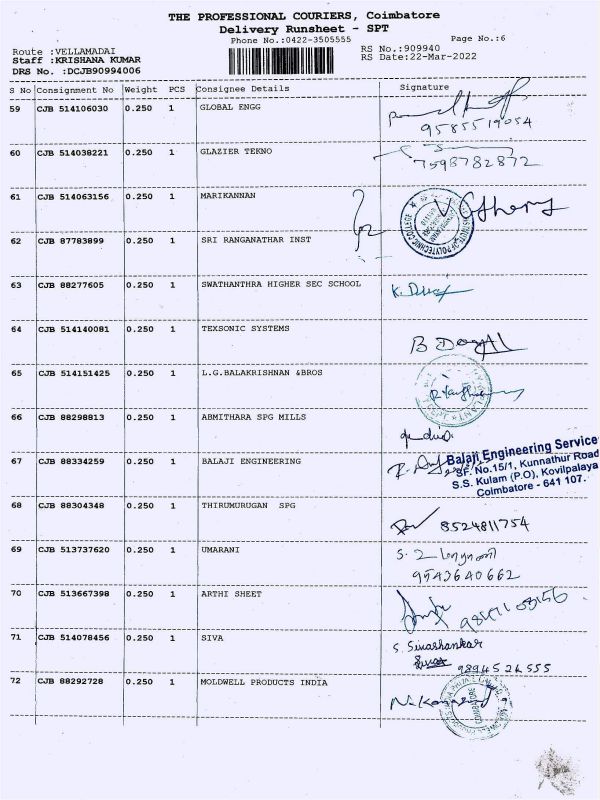 THE PROFESSIONAL COURIERS, Coimbatore
Delivery Runsheet - SPT
Phone No.:0422-3505555 Page No.:6
Route :VELLAMADAI RS No.:909940
Staff :KRISHANA KUMAR RS Date:22-Mar-2022
DRS No. :DCJB90994006
S No Consignment No Weight PCS Consignee Details Signature
59 CJB 514106030 0.250 1 GLOBAL ENGG
9585519054
60 CJB 514038221 0.250 1 GLAZIER TEKNO
7598782872
61 CJB 514063156 0.250 1 MARIKANNAN
62 CJB 87783899 0.250 1 SRI RANGANATHAR INST
63 CJB 88277605 0.250 1 SWATHANTHRA HIGHER SEC SCHOOL
64 CJB 514140081 0.250 1 TEXSONIC SYSTEMS
65 CJB 514151425 0.250 1 L.G.BALAKRISHNAN &BROS
66 CJB 88298813 0.250 1 ABMITHARA SPG MILLS
67 CJB 88334259 0.250 1 BALAJI ENGINEERING
Balaji Engineering Service
SF. No.15/1, Kunnathur Road
S.S. Kulam (P.O), Kovilpalaya
Coimbatore - 641 107.
68 CJB 88304348 0.250 1 THIRUMURUGAN SPG
8524811754
69 CJB 513737620 0.250 1 UMARANI
9543640662
70 CJB 513667398 0.250 1 ARTHI SHEET
71 CJB 514078456 0.250 1 SIVA
S. Sivashankar
9894526555
72 CJB 88292728 0.250 1 MOLDWELL PRODUCTS INDIA